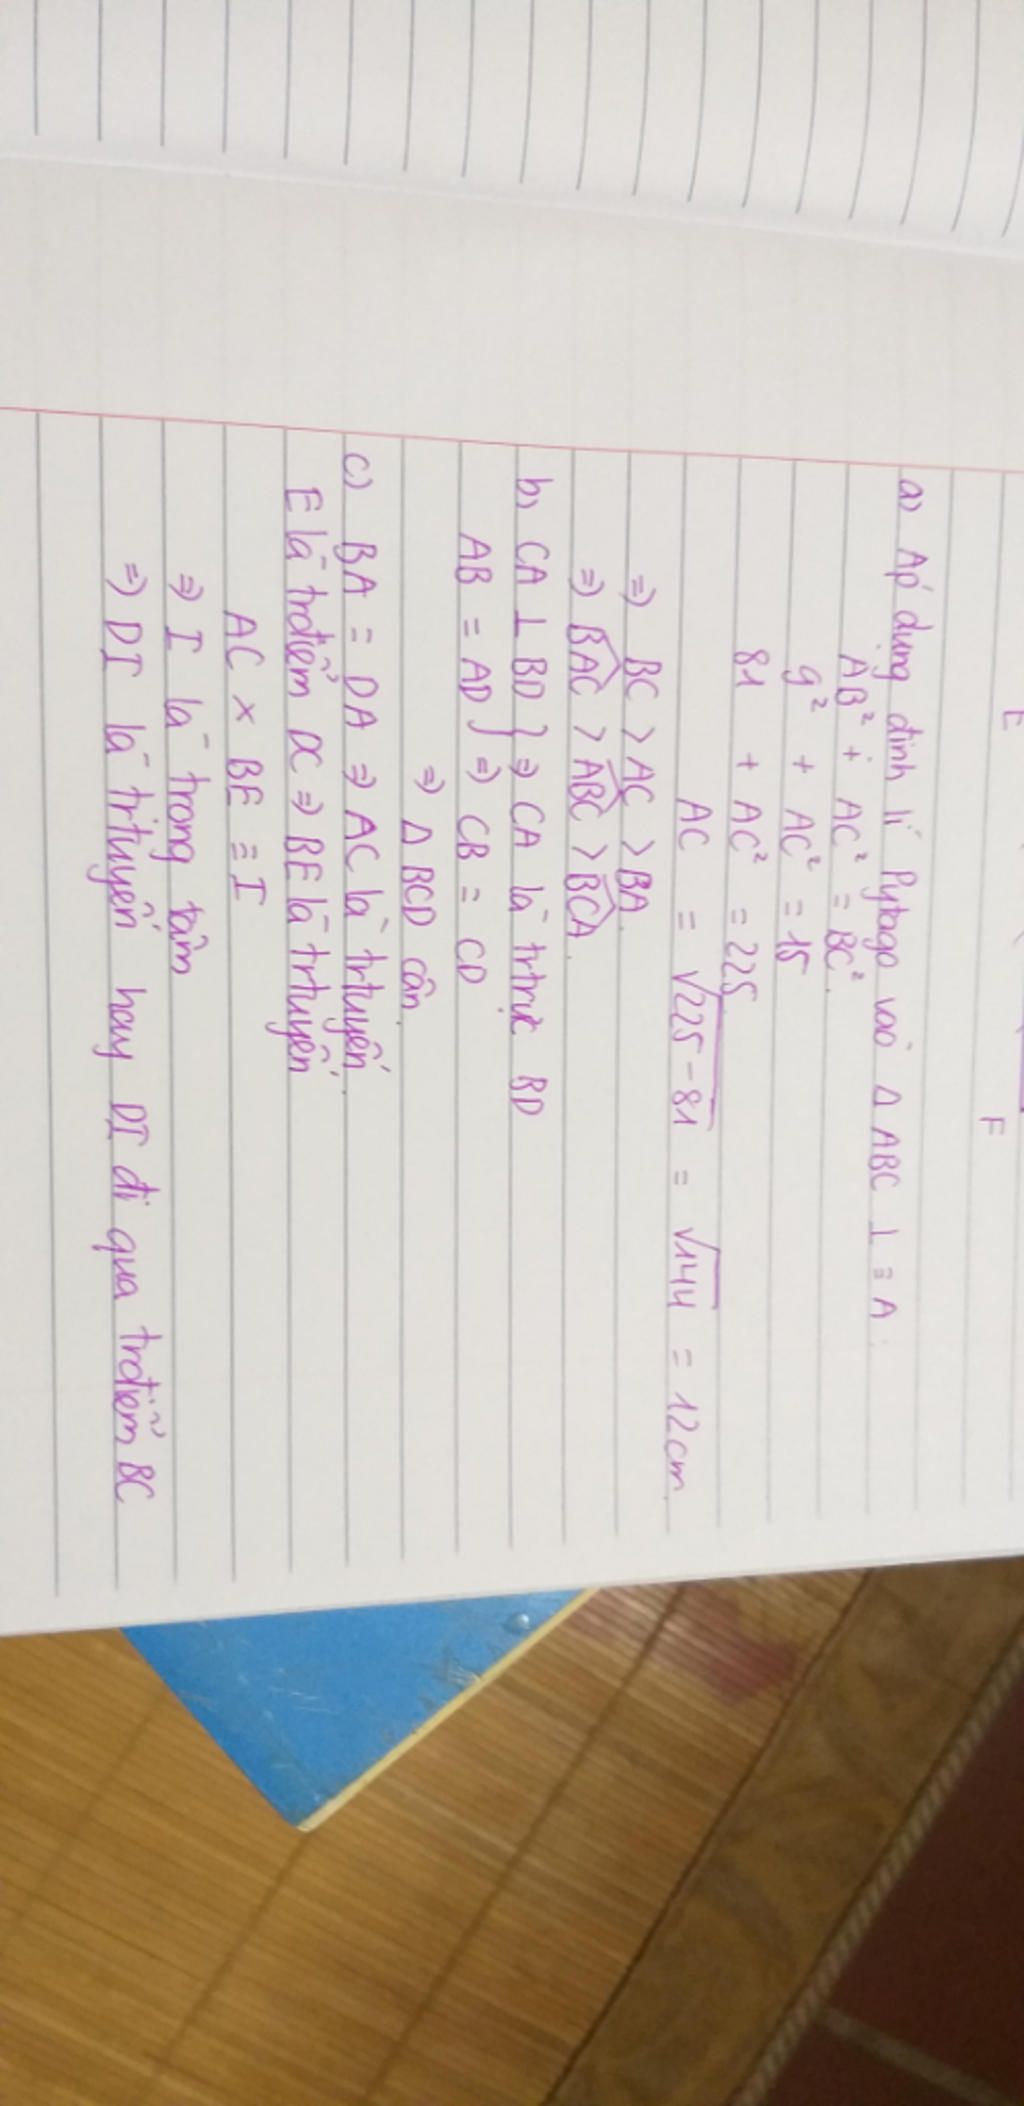 E
F
a) Áp dụng định lí Pytago vào Δ ABC ⊥ ≡ A:
AB² + AC² = BC².
9² + AC² = 15
81 + AC² = 225
AC = √225-81 = √144 = 12cm.
=) BC > AC > BA
=) BAC > ABC > BCA.
b) CA ⊥ BD } => CA là trtrực BD
AB = AD } => CB = CD
=) Δ BCD cân.
c) BA = DA => AC là trtuyến.
E là trđiểm DC => BE là trtuyến
AC × BE ≡ I
=) I là trọng tâm
=) DI là trtuyến hay DI đi qua trđiểm BC